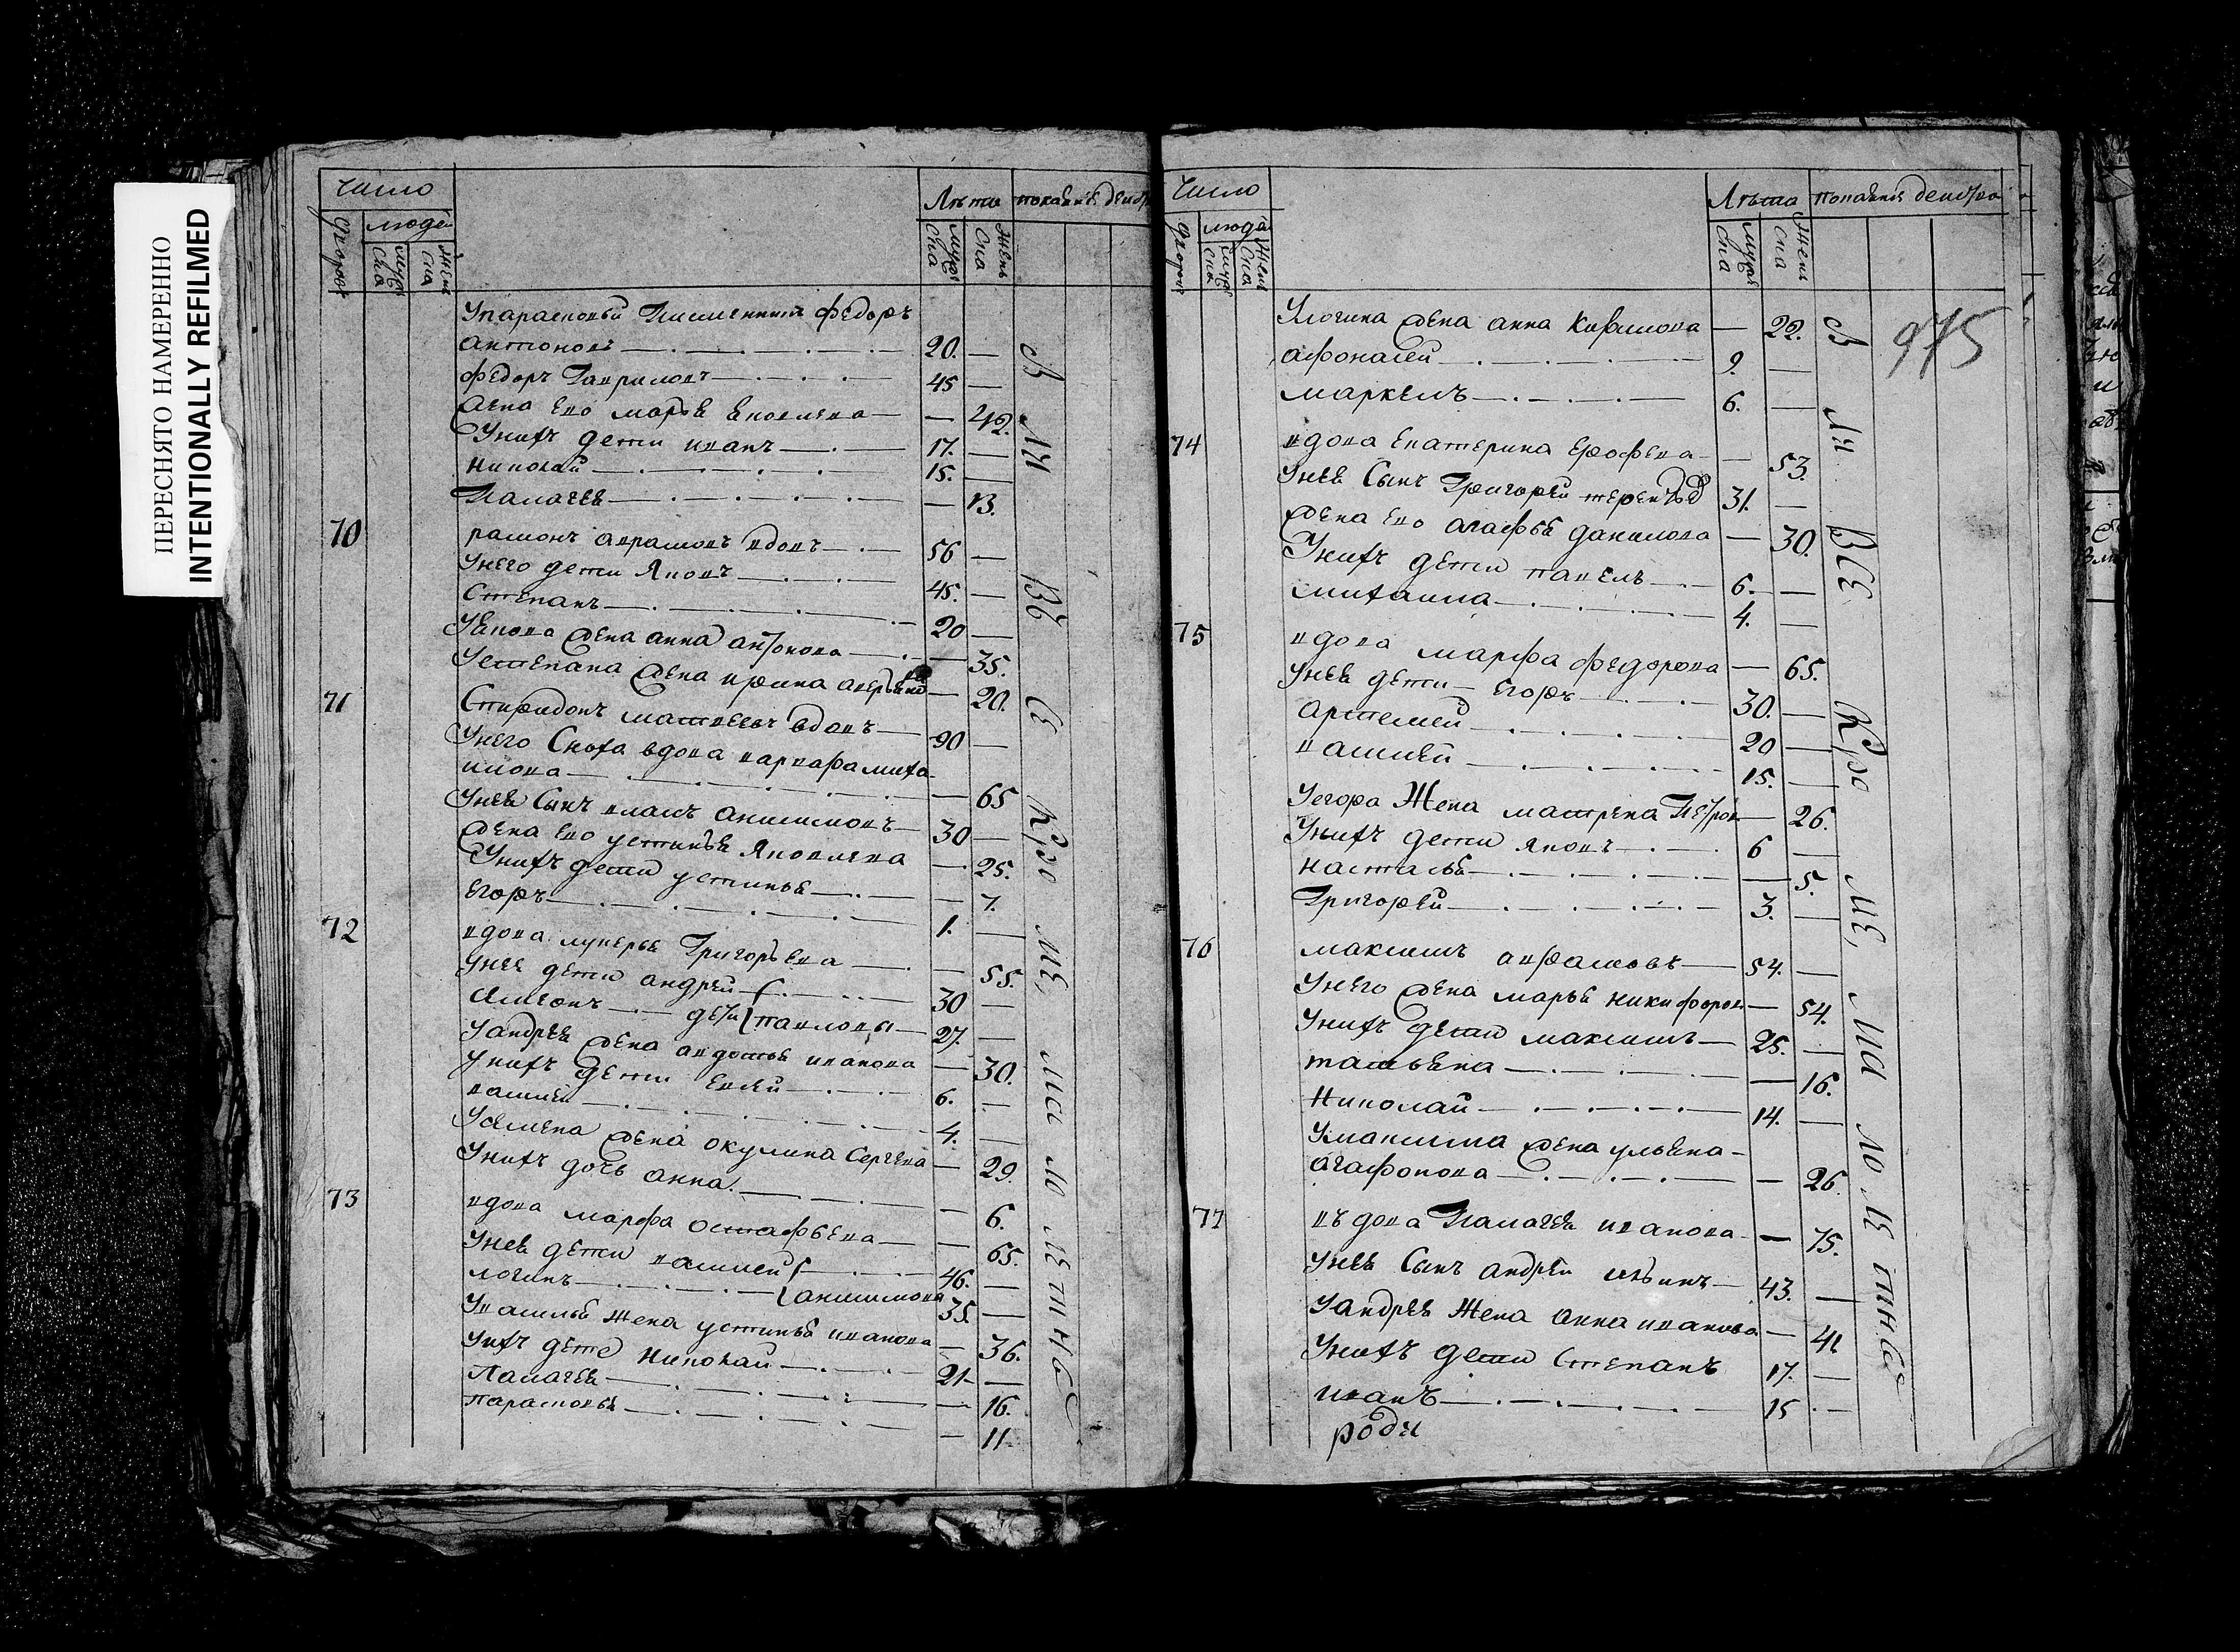 ПЕРЕСНЯТО НАМЕРЕННО
INTENTIONALLY REFILMED
Число
людей
Лѣта
Упарасковьи Племенникъ Федоръ
антоновъ 20. —
Федоръ Гавриловъ 45 —
жена Ево марья — 42.
Унихъ дети иванъ 17. —
николай 15. —
Палагея — 13.
70 авра­мовъ вдовъ 56 —
Унего дети Яковъ 45. —
Степанъ 20 —
Уякова жена анна антонова — 35.
Устепана жена ирина — 20.
71 Спиридонъ матвеевъ вдовъ 90 —
Унего Сноха вдова варвара миха
илова — 65
Унея Сынъ власъ анисимовъ 30 —
жена Ево устинья Яковлева — 25.
Унихъ дети устинья — 7.
Егоръ 1. —
72 вдова лукерья Григорьева — 55.
Унея дети андрей 30 —
Симеонъ дети павловы 27. —
Уандрея жена авдотья иванова — 30.
Унихъ дети Евсей 6. —
василей 4. —
Усемена жена окулина Сергеева — 29.
Унихъ дочь анна — 6.
73 вдова марфа остафьева — 65.
Унея дети василей 46. —
логинъ анисимовы 35. —
Увасилья жена устинья иванова — 36.
Унихъ дети николай 21 —
Палагея — 16.
парасковья — 11
ВЛИ ВСЕ КРО МЕ, МА ЛО ЛЕ ТНЫХ
Число
людей
Лѣта
975
Улогина жена анна Кирилова — 22.
афонасей 9. —
маркелъ 6. —
74 вдова Екатерина Ерофеева — 53.
Унея Сынъ Григорей терентьев 31. —
жена Ево агафья данилова — 30.
Унихъ дети павелъ 6. —
михаила 4. —
75 вдова марфа федорова — 65.
Унея дети Егоръ 30. —
артемей 20 —
василей 15. —
Уегора Жена матрена Петрова — 26.
Унихъ дети яковъ 6 —
настасья — 5.
Григорей 3. —
76 максимъ аврамовъ 54. —
Унего жена марья никифорова — 54.
Унихъ дети максимъ 25. —
татьяна — 16.
Николай 14. —
Умаксима жена ульяна
агафонова — 26.
77 въдова Палагея иванова — 75.
Унея Сынъ андрей ильинъ 43. —
Уандрея Жена анна иванова — 41
Унихъ дети Степанъ 17. —
иванъ 15 —
роди
ВЛИ ВСЕ КРО МЕ, МА ЛО ЛЕ ТНЫХ